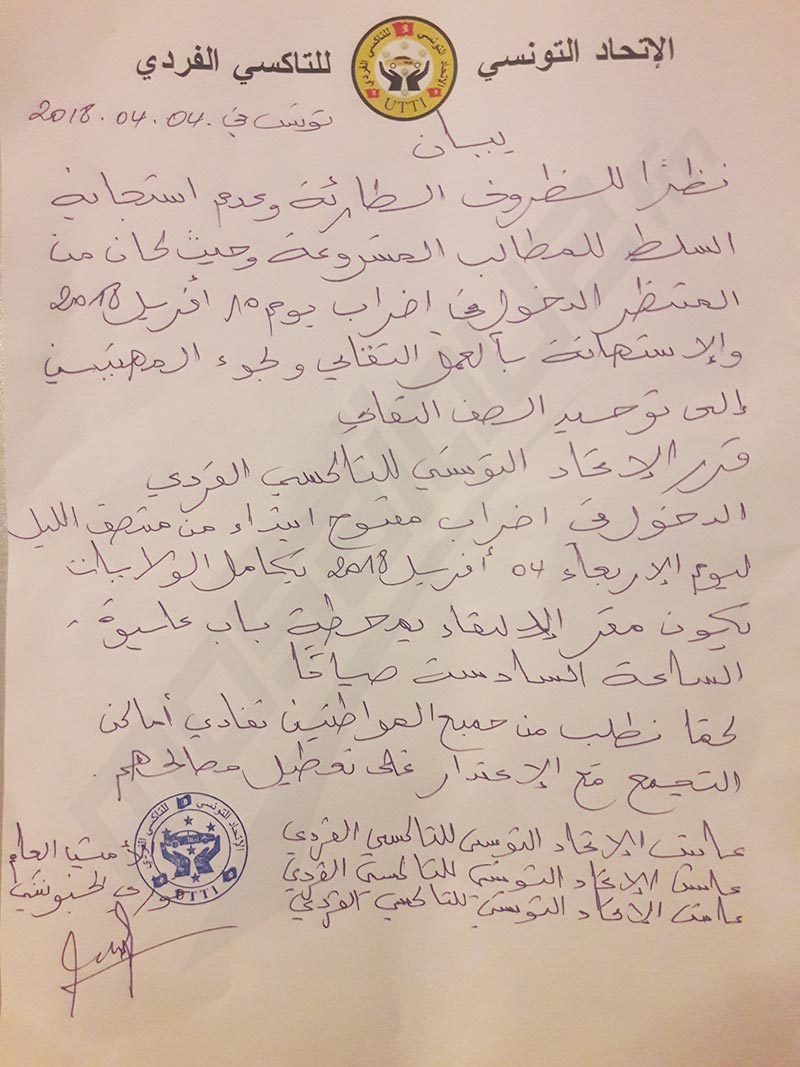 الإتحاد التونسي للتاكسي الفردي
UTTI
تونس في 2018.04.04
بيان
نظرًا للظروف الطارئة وعدم استجابة
السلط للمطالب المشروعة وحيث كان من
المنتظر الدخول في اضراب يوم 10 أفريل 2018
والاستهانة بالعمل النقابي ولجوء المهنيين
إلى توحيد الصف النقابي
قرر الإتحاد التونسي للتاكسي الفردي
الدخول في اضراب مفتوح ابتداء من منتصف الليل
ليوم الإربعاء 04 أفريل 2018 بكامل الولايات
يكون مقر الإلتقاء بمحطة باب عليوة
الساعة السادسة صباحًا
كما نطلب من جميع المواطنين تفادي أماكن
التجمع مع الإعتذار على تعطيل مصالحهم.
عاش الإتحاد التونسي للتاكسي الفردي
عاش الإتحاد التونسي للتاكسي الفردي
عاش الاتحاد التونسي للتاكسي الفردي
العام
الإتحاد التونسي للتاكسي الفردي
UTTI